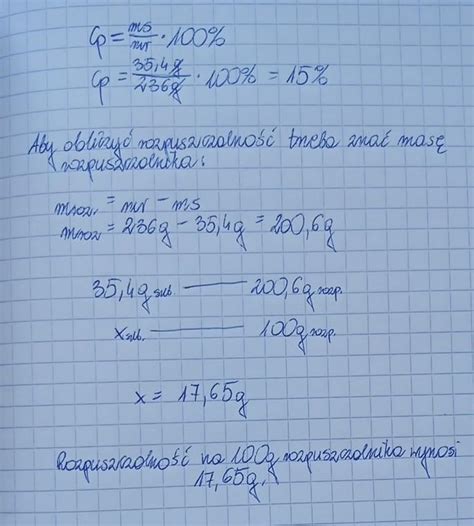 Cp = ms/mr · 100%
Cp = 35,4g/236g · 100% = 15%
Aby obliczyć rozpuszczalność trzeba znać masę
rozpuszczalnika:
mroz. = mr - ms
mroz = 236g - 35,4g = 200,6g
35,4g sub. — 200,6g rozp.
x sub. — 100g rozp.
x = 17,65g
Rozpuszczalność na 100g rozpuszczalnika wynosi
17,65g.